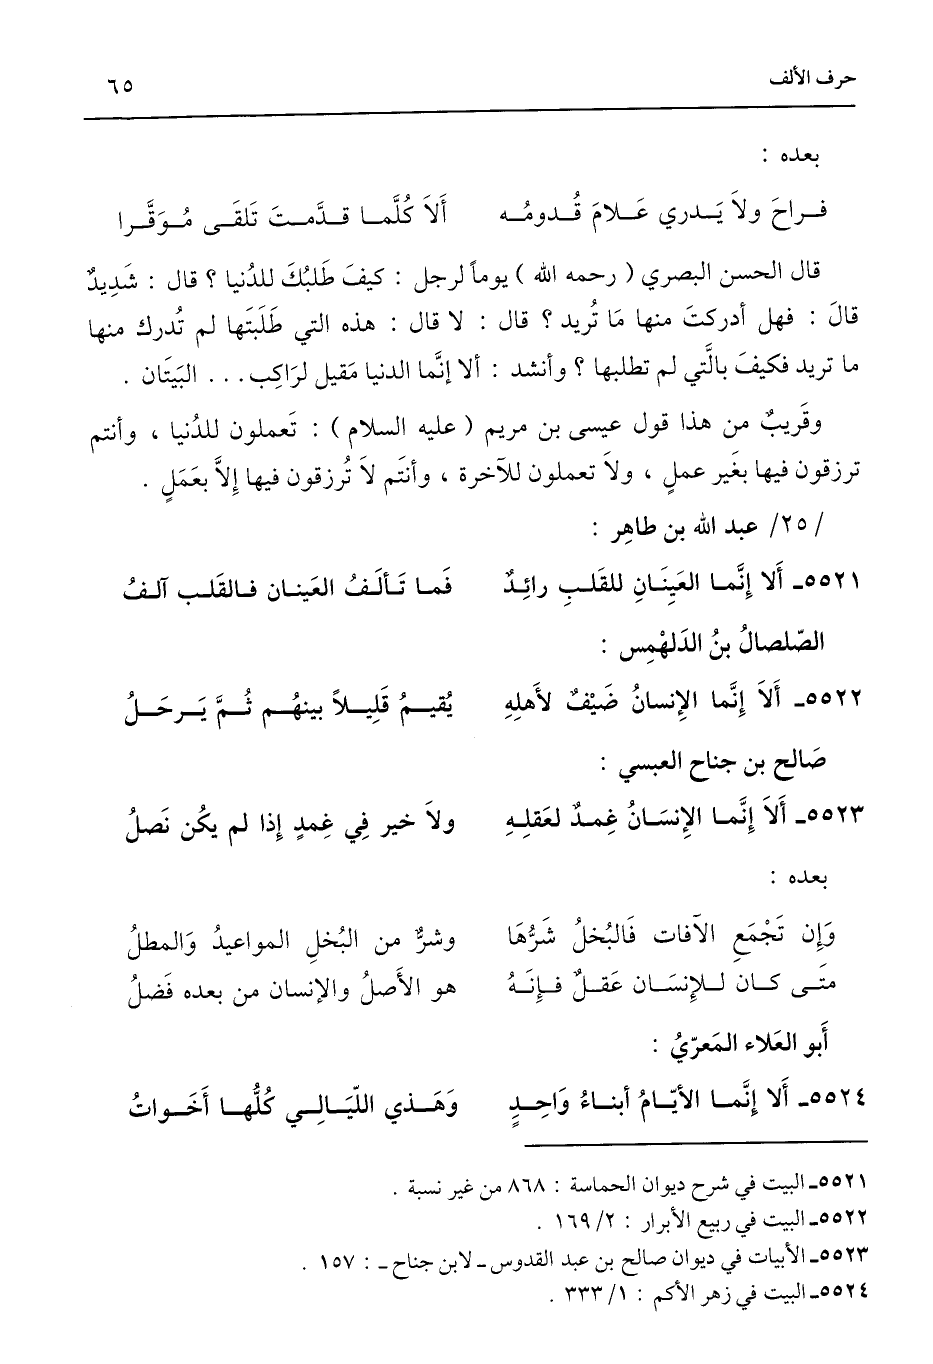 حرف الألف ٦٥
بعده :
فـراحَ ولاَ يَـدري عَـلامَ قُـدومُـه أَلاَ كُلَّمـا قـدَّمـتَ تَلقَـى مُـوَقَّرا
قال الحسن البصري ( رحمه الله ) يوماً لرجل : كيفَ طَلبُكَ للدُنيا ؟ قال : شَدِيدٌ
قالَ : فهل أدركتَ منها مَا تُريد ؟ قال : لا قال : هذه التي طَلَبَتَها لم تُدرك منها
ما تريد فكيفَ بالَّتي لم تطلبها ؟ وأنشد : ألا إنَّما الدنيا مَقيل لرَاكِب... البَيتَان .
وقَريبٌ من هذا قول عيسى بن مريم ( عليه السلام ) : تَعملون للدُنيا ، وأنتم
ترزقون فيها بغَير عملٍ ، ولاَ تعملون للآخرة ، وأنتَم لاَ تُرزقون فيها إلاَّ بعَمَلٍ .
/ ٢٥/ عبد الله بن طاهِر :
٥٥٢١ـ أَلا إنَّمـا العَينَـانِ للقَلـبِ رائِـدٌ فَمـا تَـألَـفُ العَينـان فـالقَلـب آلـفُ
الصّلصالُ بنُ الدَلهْمِس :
٥٥٢٢ـ أَلاَ إنَّما الإنسانُ ضَيْفٌ لأهلِهِ يُقيـمُ قَلِيـلاً بينهُـم ثُـمَّ يَـرحَـلُ
صَالح بن جناح العبسي :
٥٥٢٣ـ أَلاَ إنَّمـا الإنسَـانُ غِمـدٌ لعَقلِـهِ ولاَ خير فِي غِمدٍ إذا لم يكُن نَصلُ
بعده :
وَإن تَجْمَعِ الآفات فَالبُخلُ شَرُّهَا وشرٌّ من البُخلِ المواعيدُ وَالمطلُ
متَـى كـان لـلإنسَـان عَقـلٌ فـإنَـهُ هو الأصلُ والإنسان من بعده فَضلُ
أَبو العَلاء المَعرّيُ :
٥٥٢٤ـ أَلا إنَّمـا الأيّـامُ أبنـاءُ وَاحِـدٍ وَهَـذي اللّيَـالِـي كُلُّهـا أخَـواتُ
٥٥٢١ـ البيت في شرح ديوان الحماسة : ٨٦٨ من غير نسبة .
٥٥٢٢ـ البيت في ربيع الأبرار : ٢/ ١٦٩ .
٥٥٢٣ـ الأبيات في ديوان صالح بن عبد القدوس ـ لابن جناح ـ : ١٥٧ .
٥٥٢٤ـ البيت في زهر الأكم : ١/ ٣٣٣ .